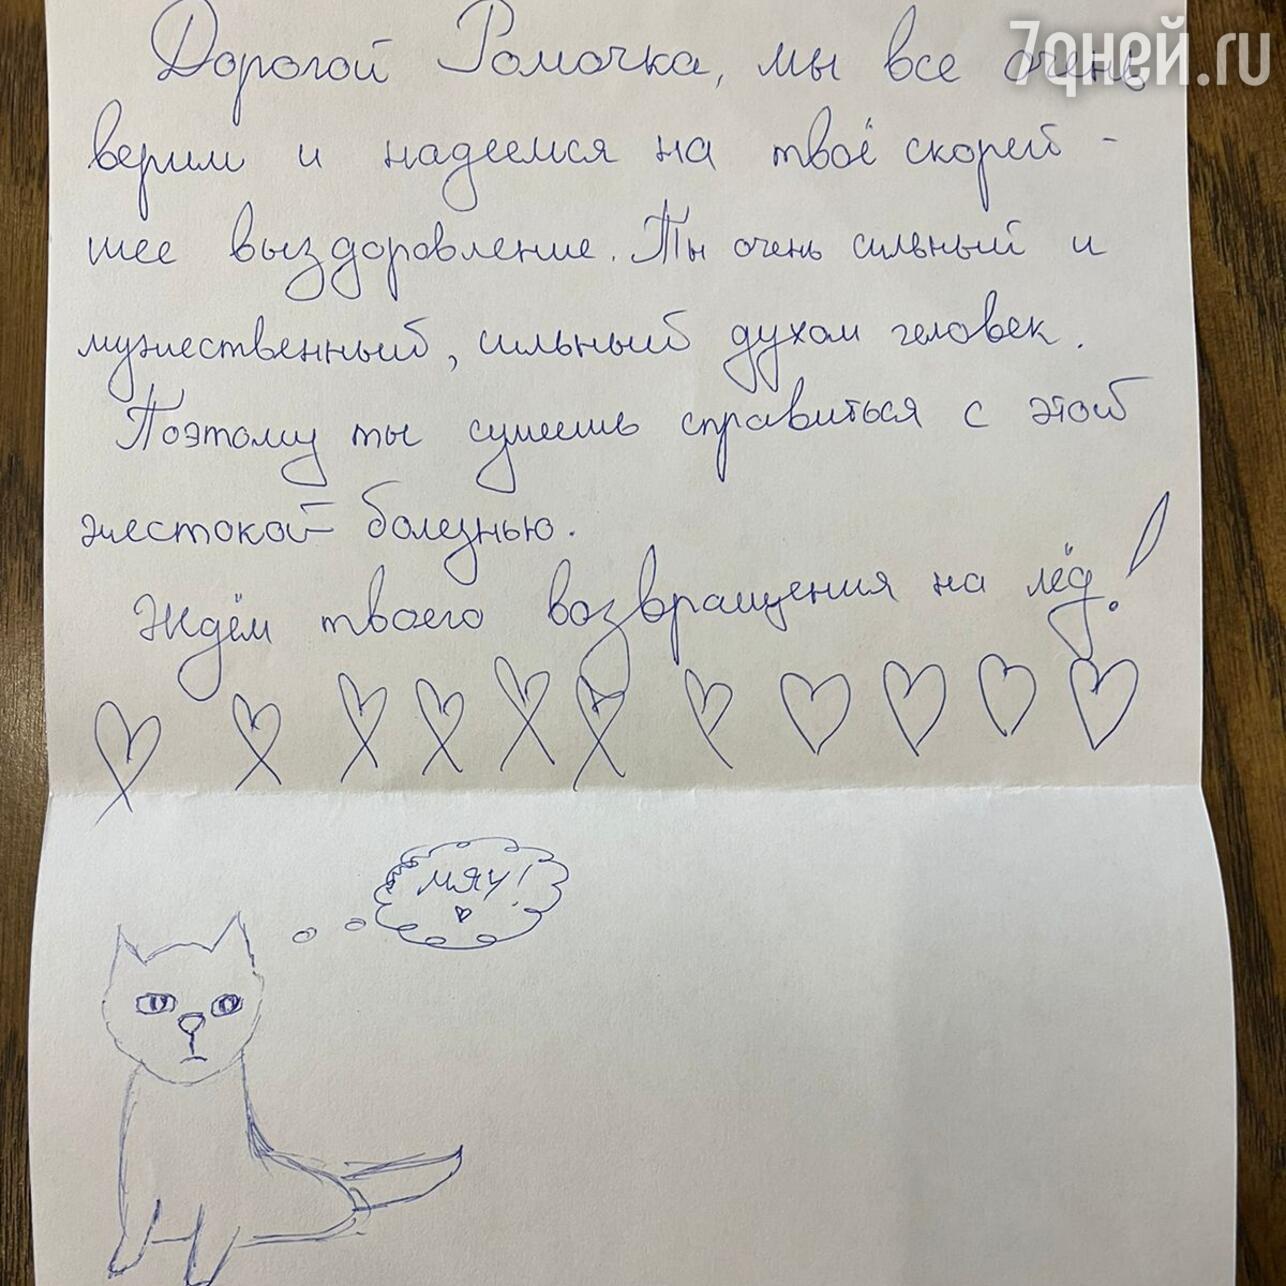 7дней.ru
Дорогой Ромочка, мы все очень
верим и надеемся на твоё скорей-
шее выздоровление. Ты очень сильный и
мужественный, сильный духом человек.
Поэтому ты сумеешь справиться с этой
жестокой болезнью.
Ждём твоего возвращения на лёд!
мяу!